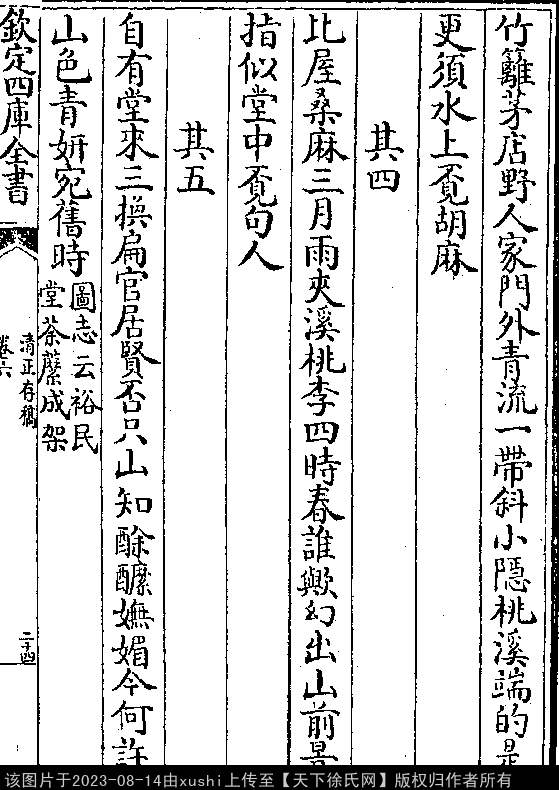 竹籬茅店野人家門外青流一帶斜小隱桃溪端的是
更須水上覔胡麻
其四
比屋桑麻三月雨夾溪桃李四時春誰歟幻出山前景
指似堂中覔句人
其五
自有堂來三換扁官居賢否只山知酴醿嫵媚今何許
山色青妍宛舊時圖志云裕民
堂荼蘼成架
欽定四庫全書
清正存稿
卷六
二十四
该图片于2023-08-14由xushi上传至【天下徐氏网】版权归作者所有